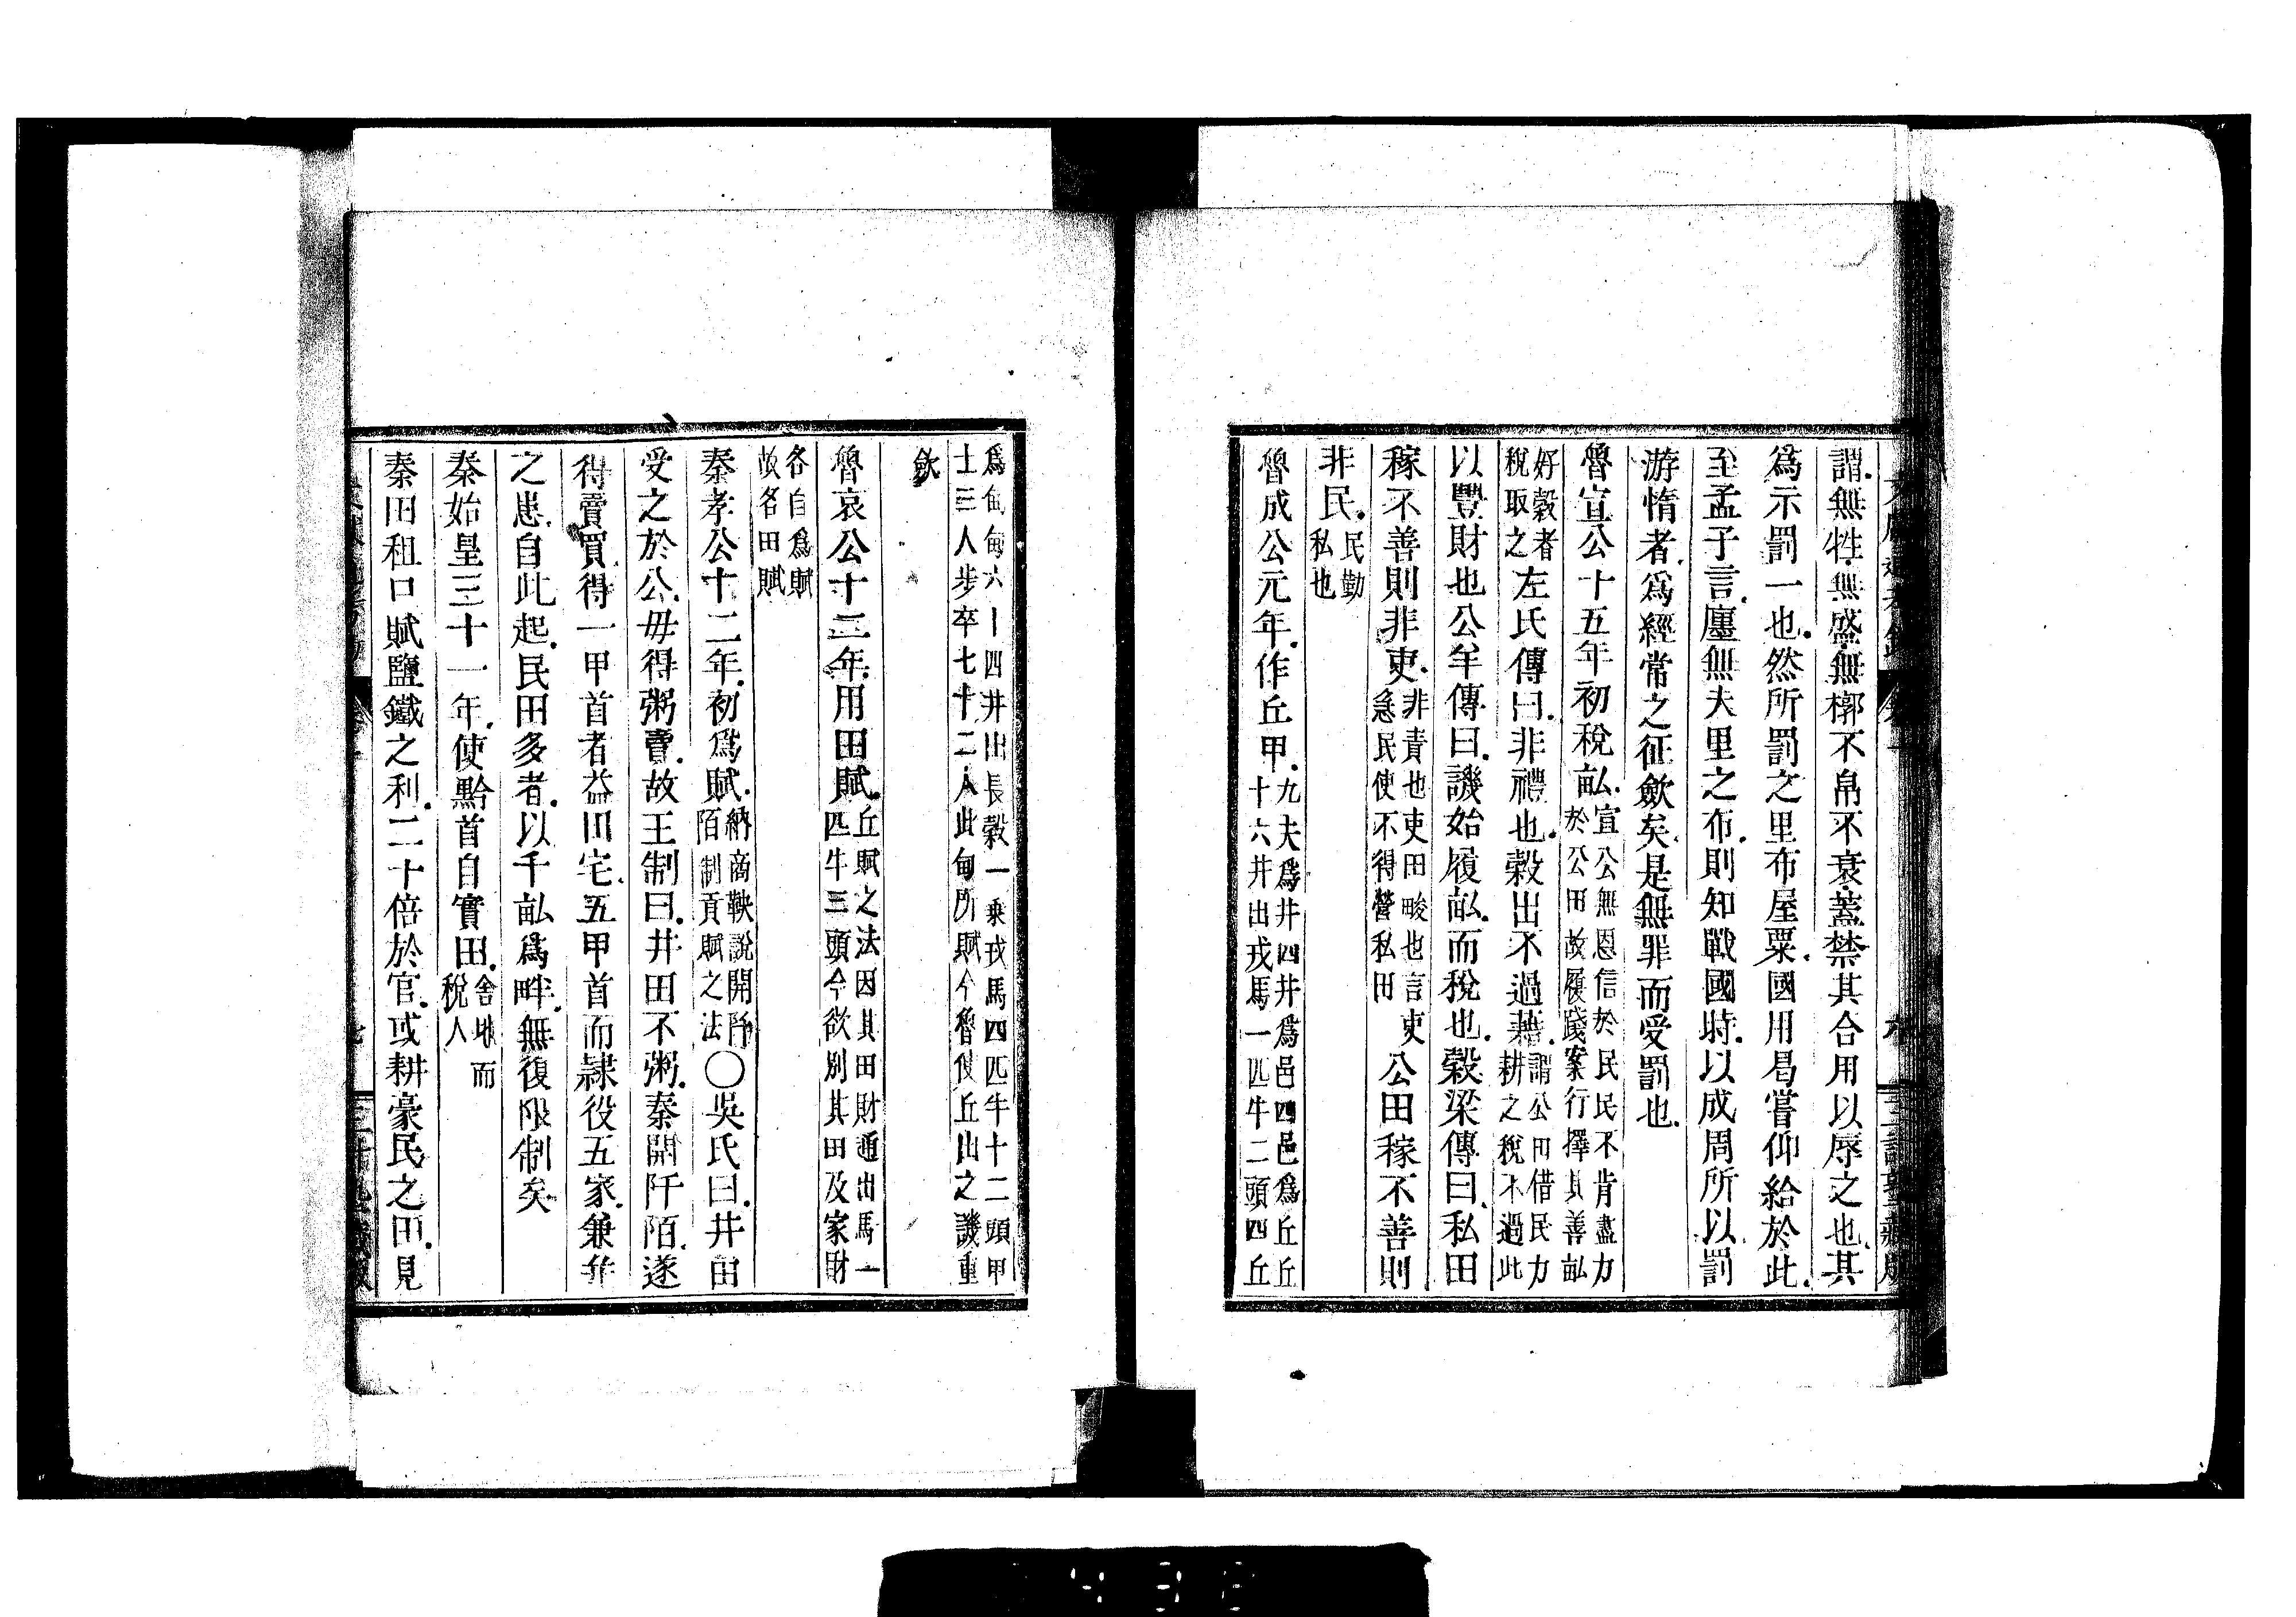 謂無牲無盛無槨不帛不衰蓋禁其合用以辱之也其
為示罰一也然所罰之里布屋粟國用曷嘗仰給於此
至孟子言廛無夫里之布則知戰國時以成周所以罰
游惰者為經常之征歛矣是無罪而受罰也
魯宣公十五年初稅畝宣公無恩信於民民不肯盡力
於公田故履踐案行擇其善畝
好穀者
稅取之左氏傳曰非禮也穀出不過藉謂公田借民力
耕之稅不過此
以豐財也公羊傳曰譏始履畝而稅也穀梁傳曰私田
稼不善則非吏非責也吏田畯也言吏
急民使不得營私田公田稼不善則
非民民勤
私也
魯成公元年作丘甲九夫為井四井為邑四邑為丘丘
十六井出戎馬一匹牛二頭四丘
為甸甸六十四井出長轂一乘戎馬四匹牛十二頭甲
士三人步卒七十二人此甸所賦今魯使丘出之譏重
歛
魯哀公十二年用田賦丘賦之法因其田財通出馬一
匹牛三頭今欲別其田及家財
各自為賦
故名田賦
秦孝公十二年初為賦納商鞅說開阡
陌制貢賦之法○吳氏曰井田
受之於公毋得粥賣故王制曰井田不粥秦開阡陌遂
得賣買得一甲首者益田宅五甲首而隸役五家兼并
之患自此起民田多者以千畝為畔無復限制矣
秦始皇三十一年使黔首自實田舍地而
稅人
秦田租口賦鹽鐵之利二十倍於官或耕豪民之田見